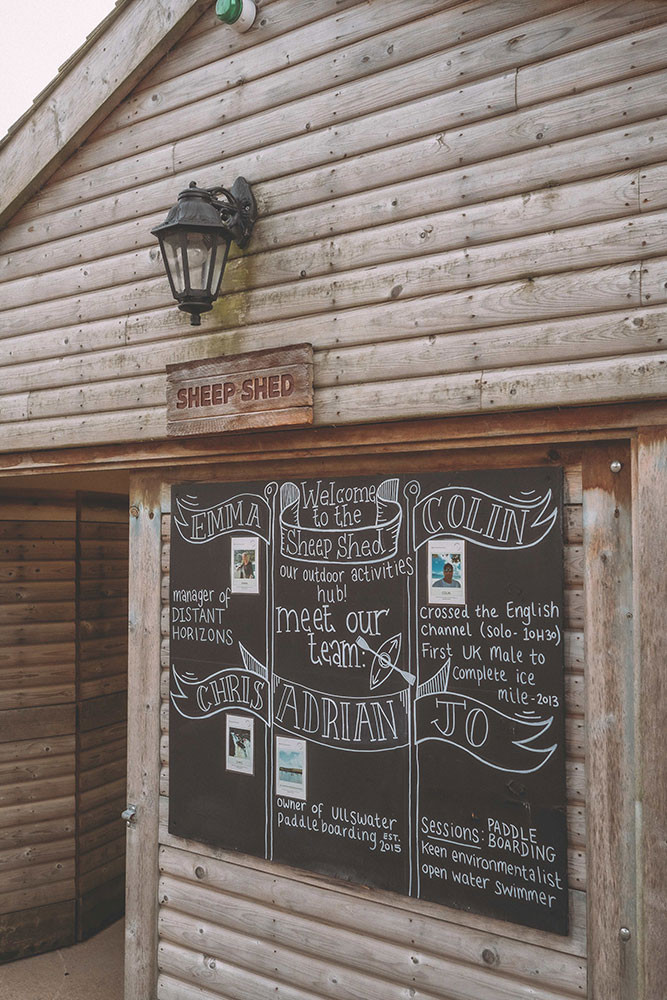 SHEEP SHED
Welcome
to the
Sheep Shed
our outdoor activities
hub!
meet our
team:
EMMA
manager of
DISTANT
HORIZONS
COLIN
crossed the English
channel (solo - 10H30)
First UK Male to
Complete ice
mile - 2013
CHRIS
ADRIAN
owner of Ullswater
paddle boarding EST.
2015
JO
Sessions: PADDLE
BOARDING
Keen environmentalist
open water swimmer